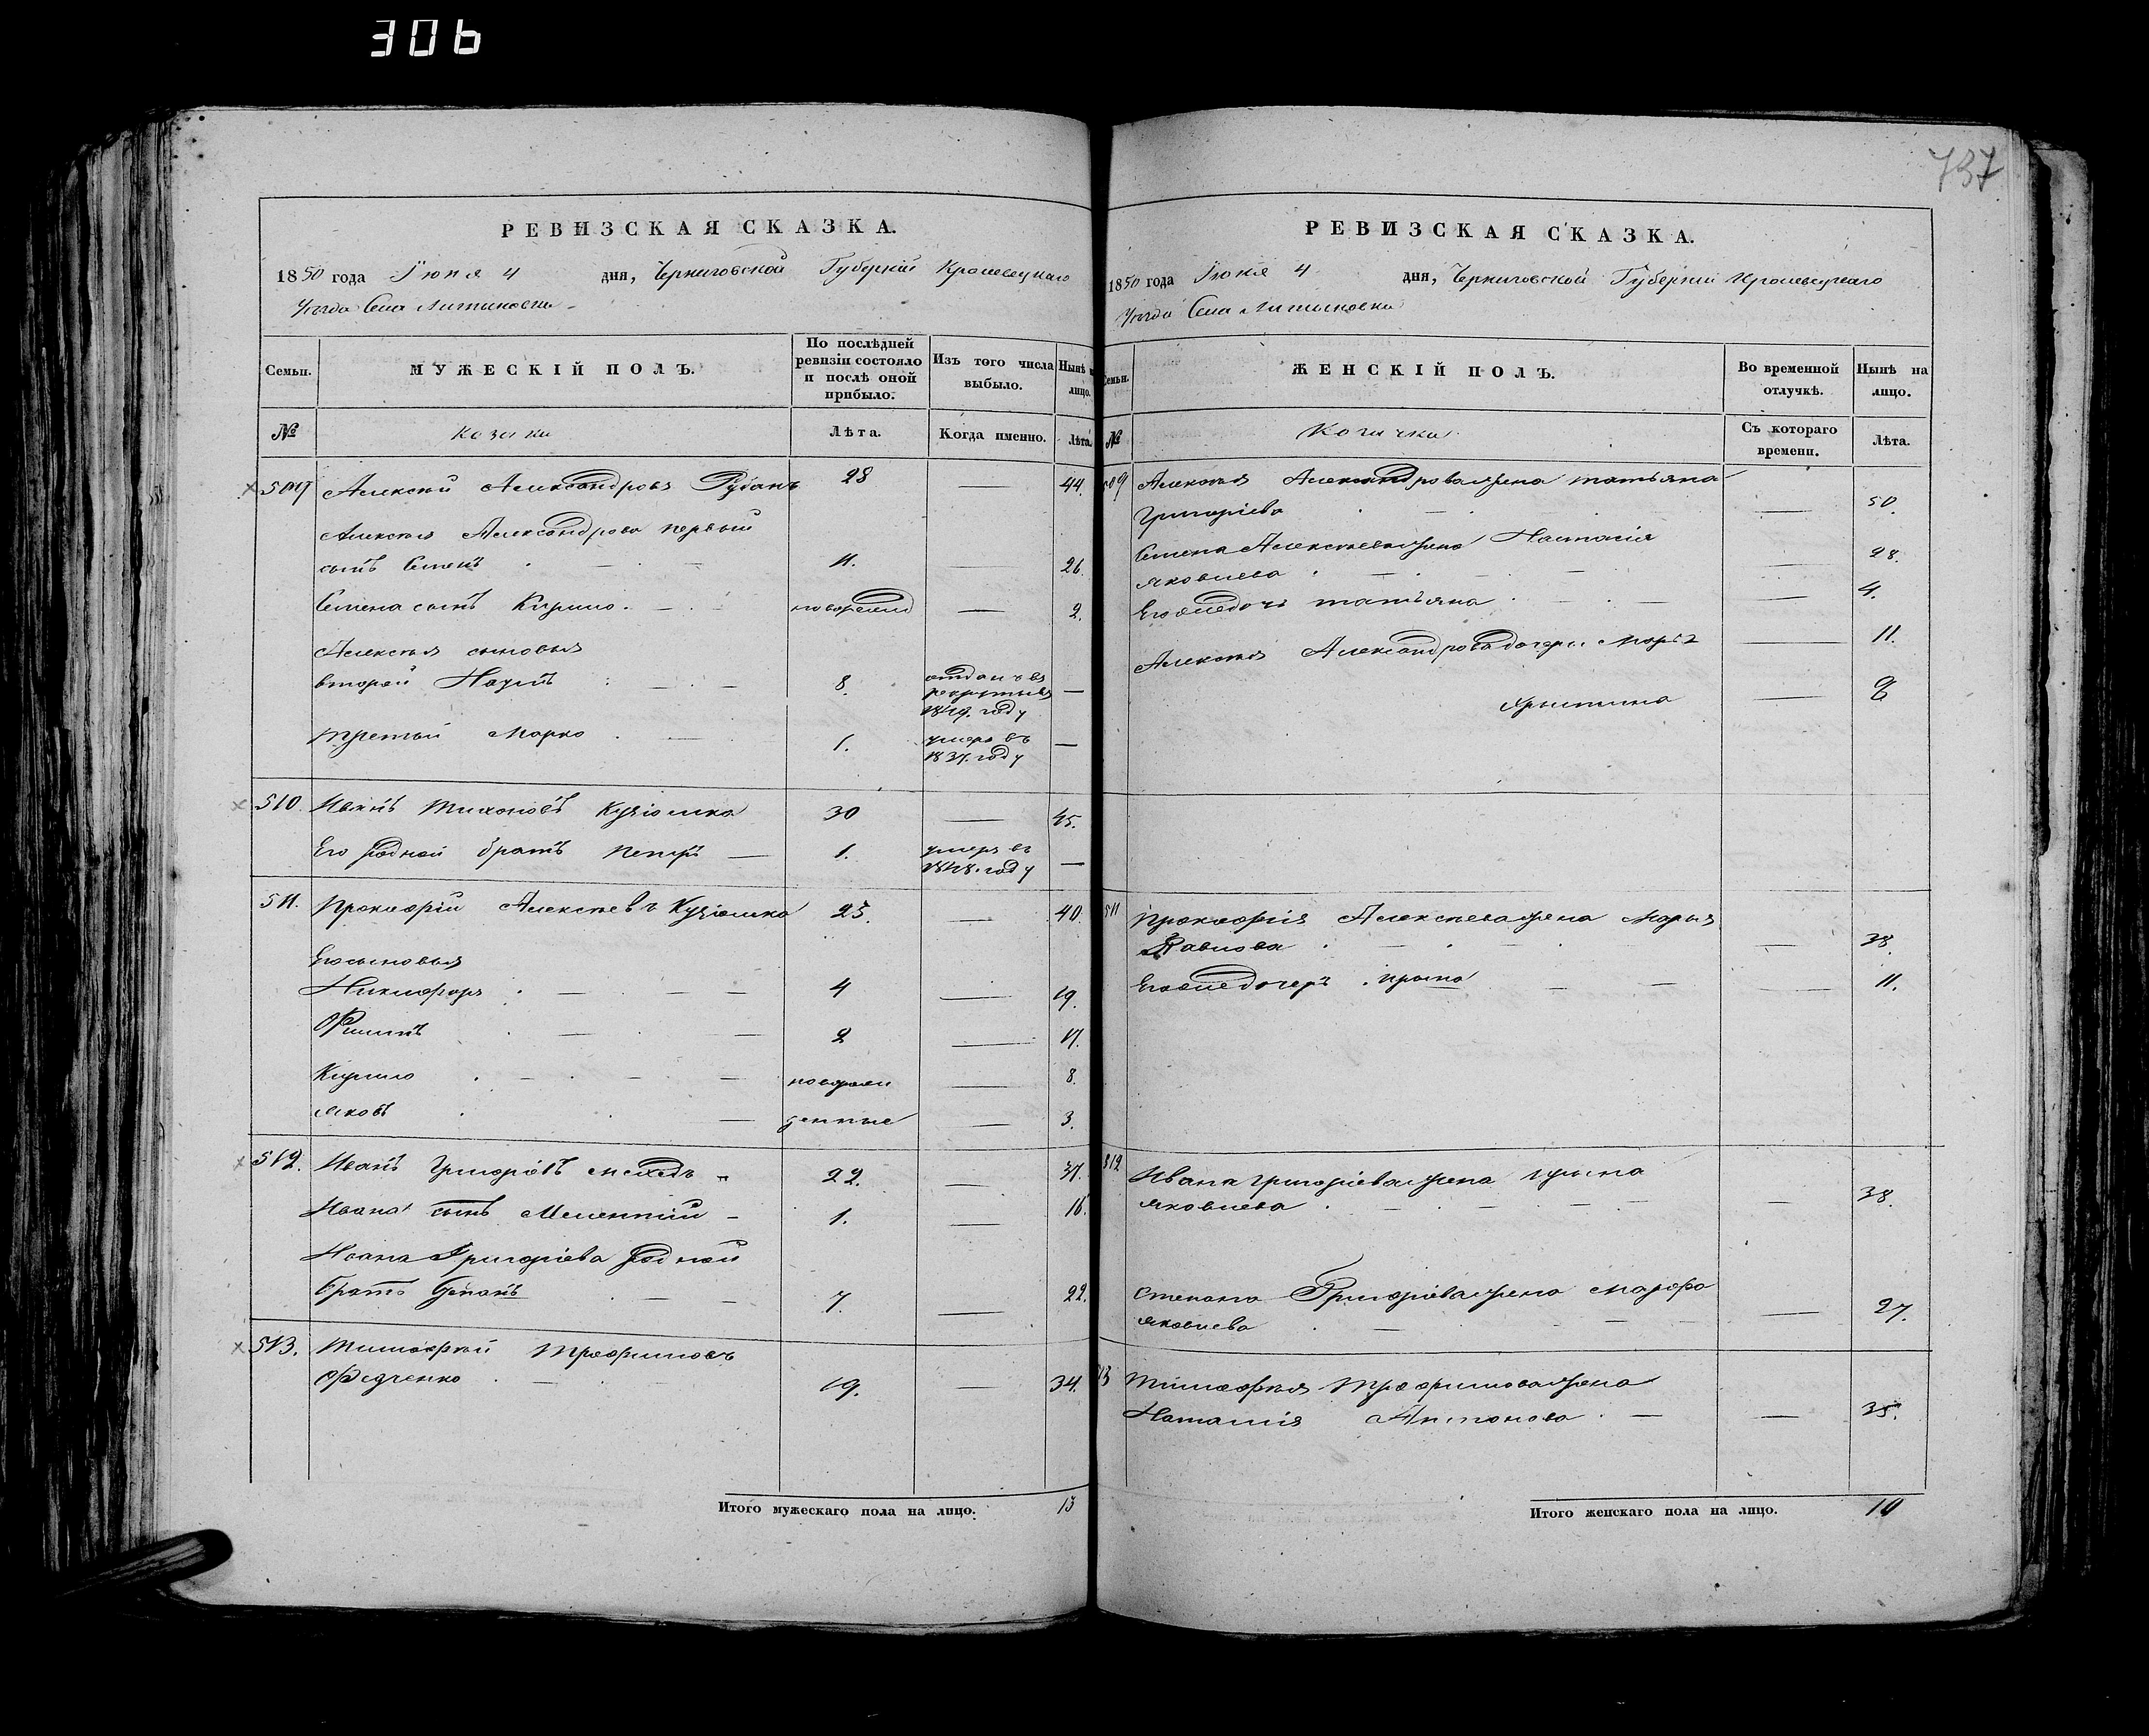 306
737
РЕВИЗСКАЯ СКАЗКА.
1850 года Іюня 4 дня, Черниговской Губерніи Кролевецкаго
Уѣзда Села Литвиновки
Семьи.
МУЖЕСКІЙ ПОЛЪ.
По послѣдней ревизіи состояло и послѣ оной прибыло.
Изъ того числа выбыло.
Нынѣ на лицо.
№
Козаки
Лѣта.
Когда именно.
Лѣта.
509 Алексѣй Александровъ Рубанъ 28 — 44.
Алексѣя Александрова первый
сынъ Семенъ 11. — 26.
Семена сынъ Кирило новорожд — 2.
Алексѣя сыновья
второй Наумъ 8. отданъ въ рекруты въ 1849. году —
третій Марко 1. умеръ въ 1837. году —
510. Иванъ Тихоновъ Кузіомка 30 — 45.
Его родной братъ Петръ — 1. умеръ въ 1848. году —
511. Прокофій Алексѣевъ Кузіомка 25. — 40.
Его сыновья
Никифоръ 4 — 19.
Филипъ 2 — 17.
Кирило новорож — 8.
Яковъ денные — 3.
512. Иванъ Григоріевъ 22. — 37.
Ивана сынъ Мелентій 1. — 16.
Ивана Григоріева родной
братъ Степанъ 7. — 22.
513. Тимофѣй Трофимовъ
Федченко 19. — 34.
Итого мужескаго пола на лицо. 13
РЕВИЗСКАЯ СКАЗКА.
1850 года Іюня 4 дня, Черниговской Губерніи Кролевецкаго
Уѣзда Села Литвиновки
Семьи.
ЖЕНСКІЙ ПОЛЪ.
Во временной отлучкѣ.
Нынѣ на лицо.
№
Козачки
Съ котораго времени.
Лѣта.
509 Алексѣя Александрова жена Татьяна
Григоріева — 50.
Семена Алексѣева жена Настасія
Яковлева — 28.
Его же дочь Татьяна — 4.
Алексѣя Александрова дочери Марья — 11.
Христина — 8
511 Прокофія Алексѣева жена Марья
Павлова — 38.
Его же дочеръ Ирына — 11.
512 Ивана Григоріева жена Ирына
Яковлева — 38.
Степана Григоріева жена Марфа
Яковлева — 27.
513 Тимофѣя Трофимова жена
Наталія Антонова — 35.
Итого женскаго пола на лицо. 10